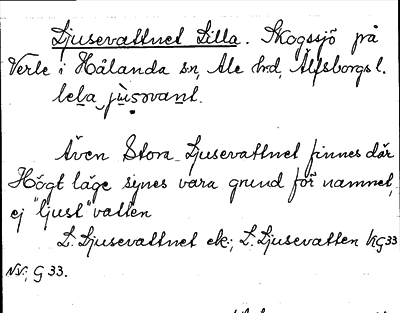 Ljusevattnet Lilla. Skogssjö på
Verle i Hålanda sn, Ale hd, Älfsborgs l.
lela jùsəvant.
Även Stora Ljusevattnet finnes där
Högt läge synes vara grund för namnet,
ej "ljust" vatten
L. Ljusevattnet ek; L. Ljusevatten HG33
NV; G 33.